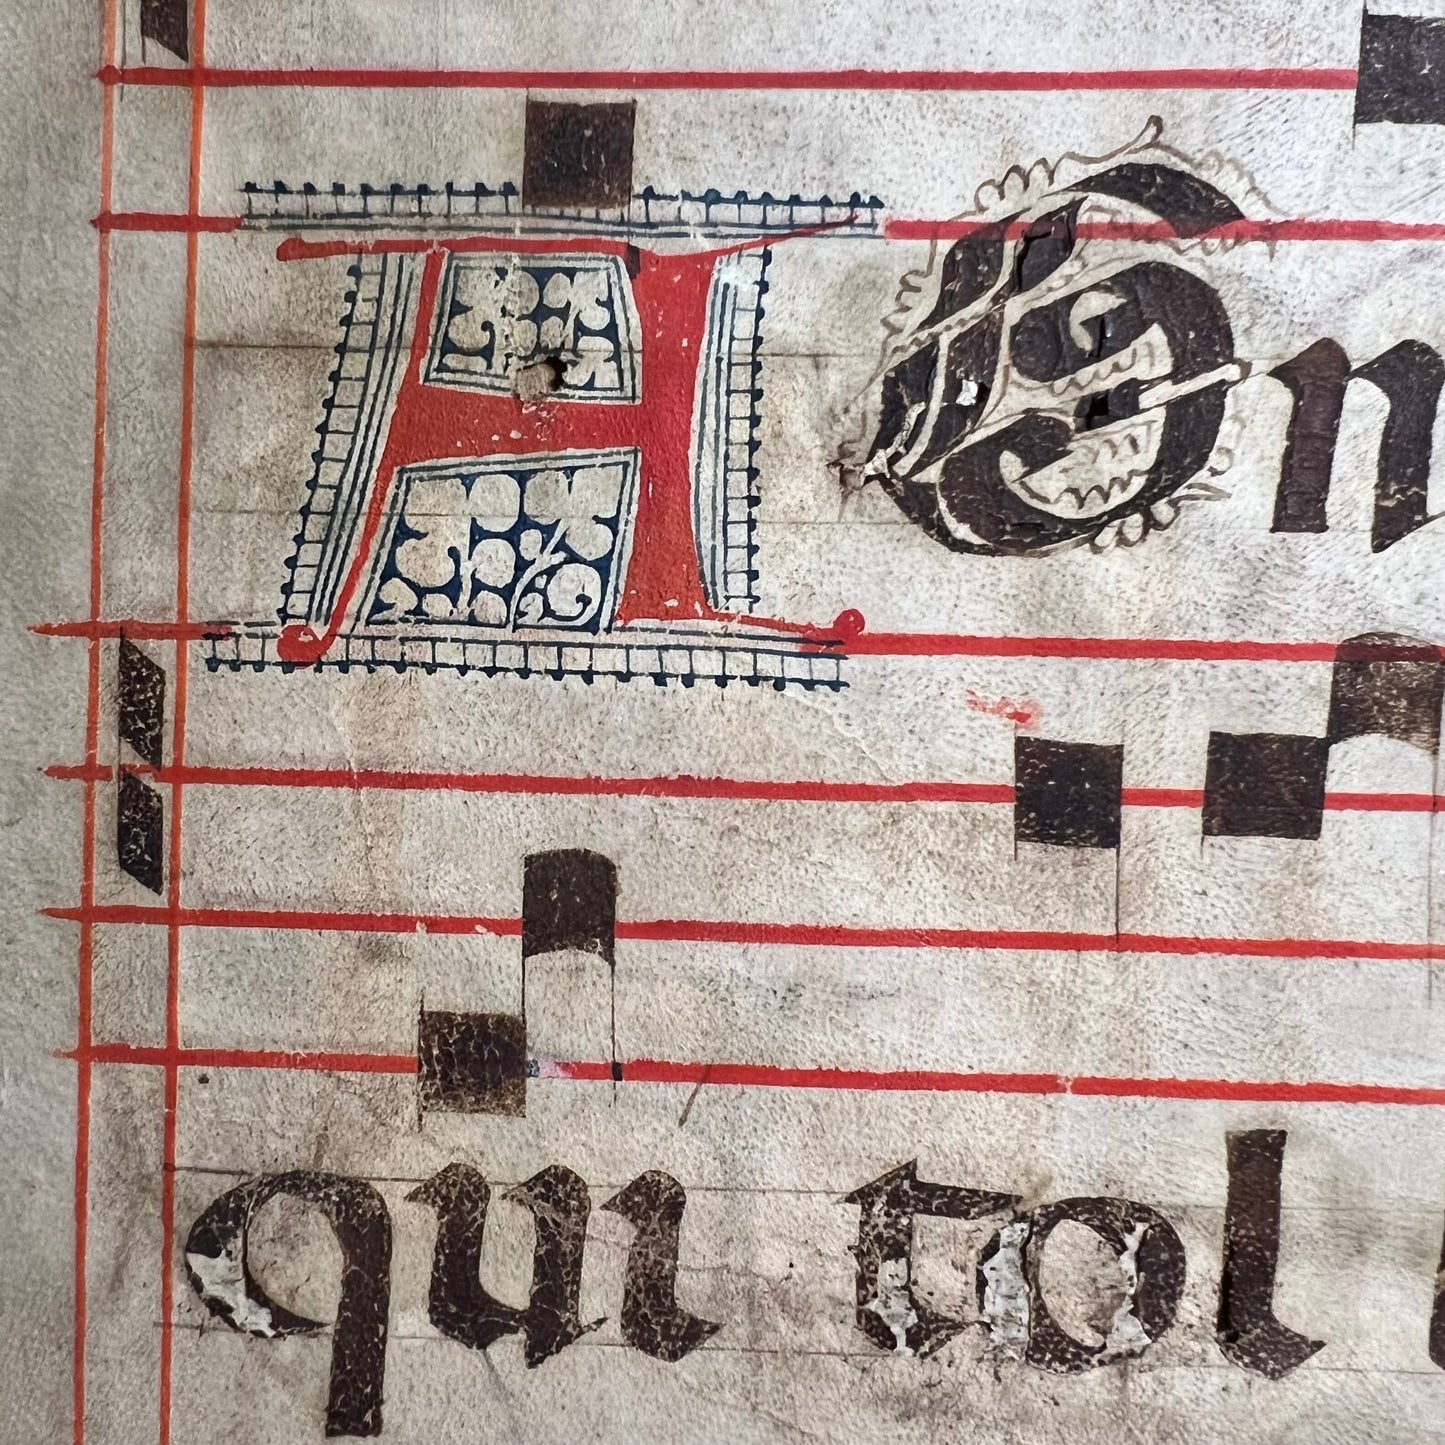 AGn
qui tol